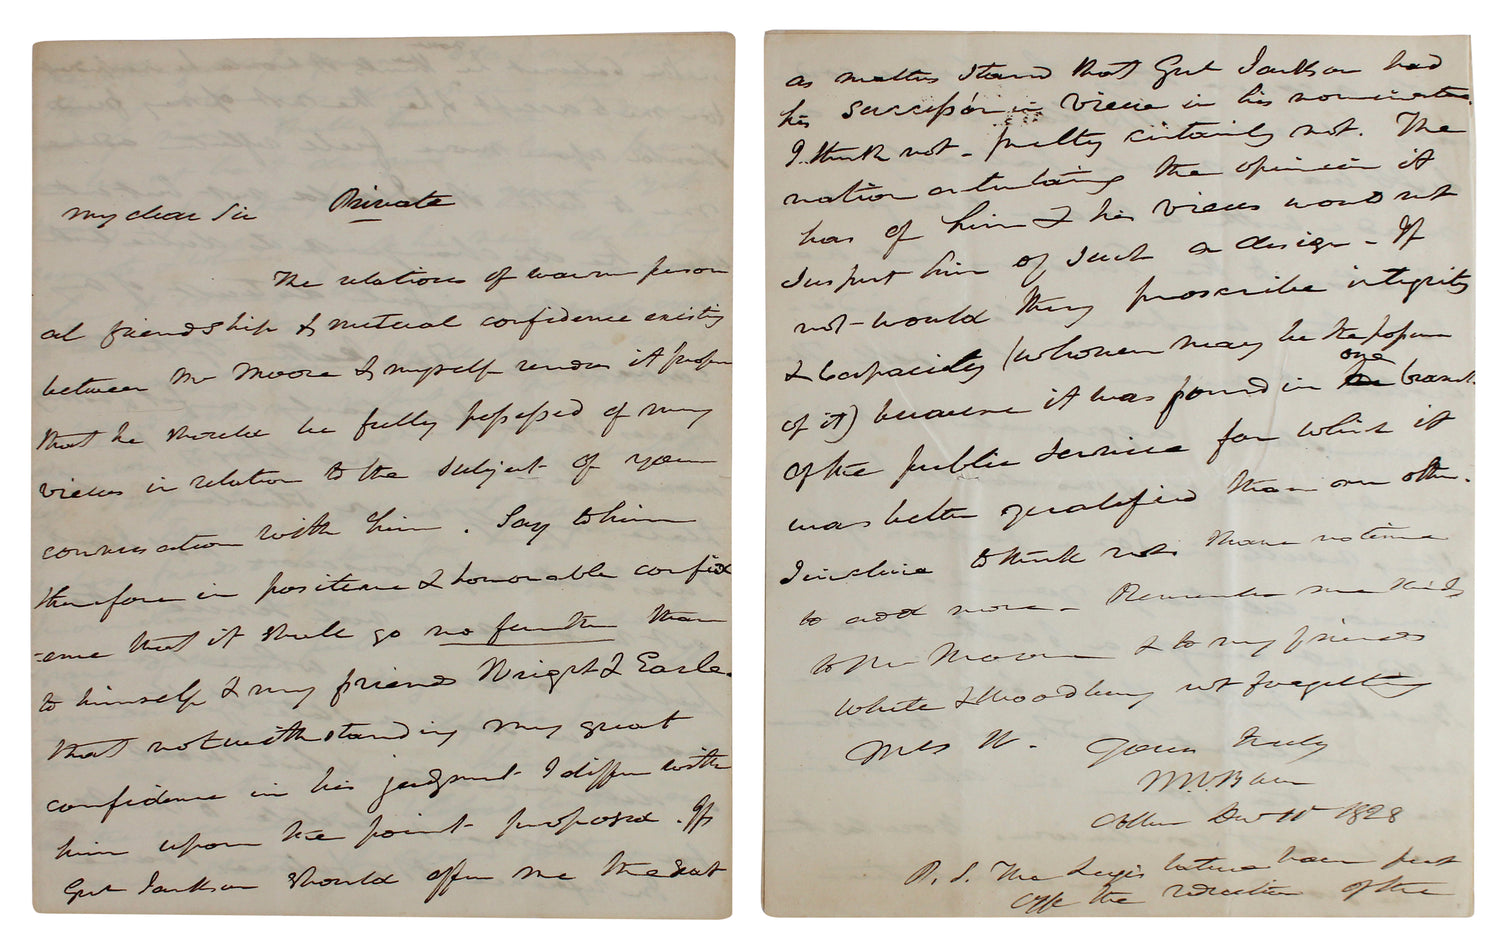 My dear Sir Private
The relations of warm person
al friendship & mutual confidence existing
between Mr Moore & myself renders it proper
that he should be fully possessed of my
views in relation to the subject of your
conversation with him. Say to him
therefore in positive & honorable confid
=ence that it shall go no further than
to himself & my friends Wright & Earle.
that notwithstanding my great
confidence in his judgment I differ with
him upon the point proposed. If
Genl Jackson should offer me the seat
as matters stand that Genl Jackson had
his successor in view in his nomination.
I think not - pretty certainly not. The
nation entertaining the opinion it
has of him & his views would not
suspect him of such a design - If
not - would they proscribe integrity
& capacity (whoever may be the
of it) because it was found in one branch
of the public service for which it
was better qualified than any other.
I incline to think not. I have no time
to add more - Remember me kindly
to Mr & to my friends
White & Woodbury not forgetting
Mrs W. Yours truly
M V Buren
Dec 1828
P. S. The Legislature have put
off the election of the